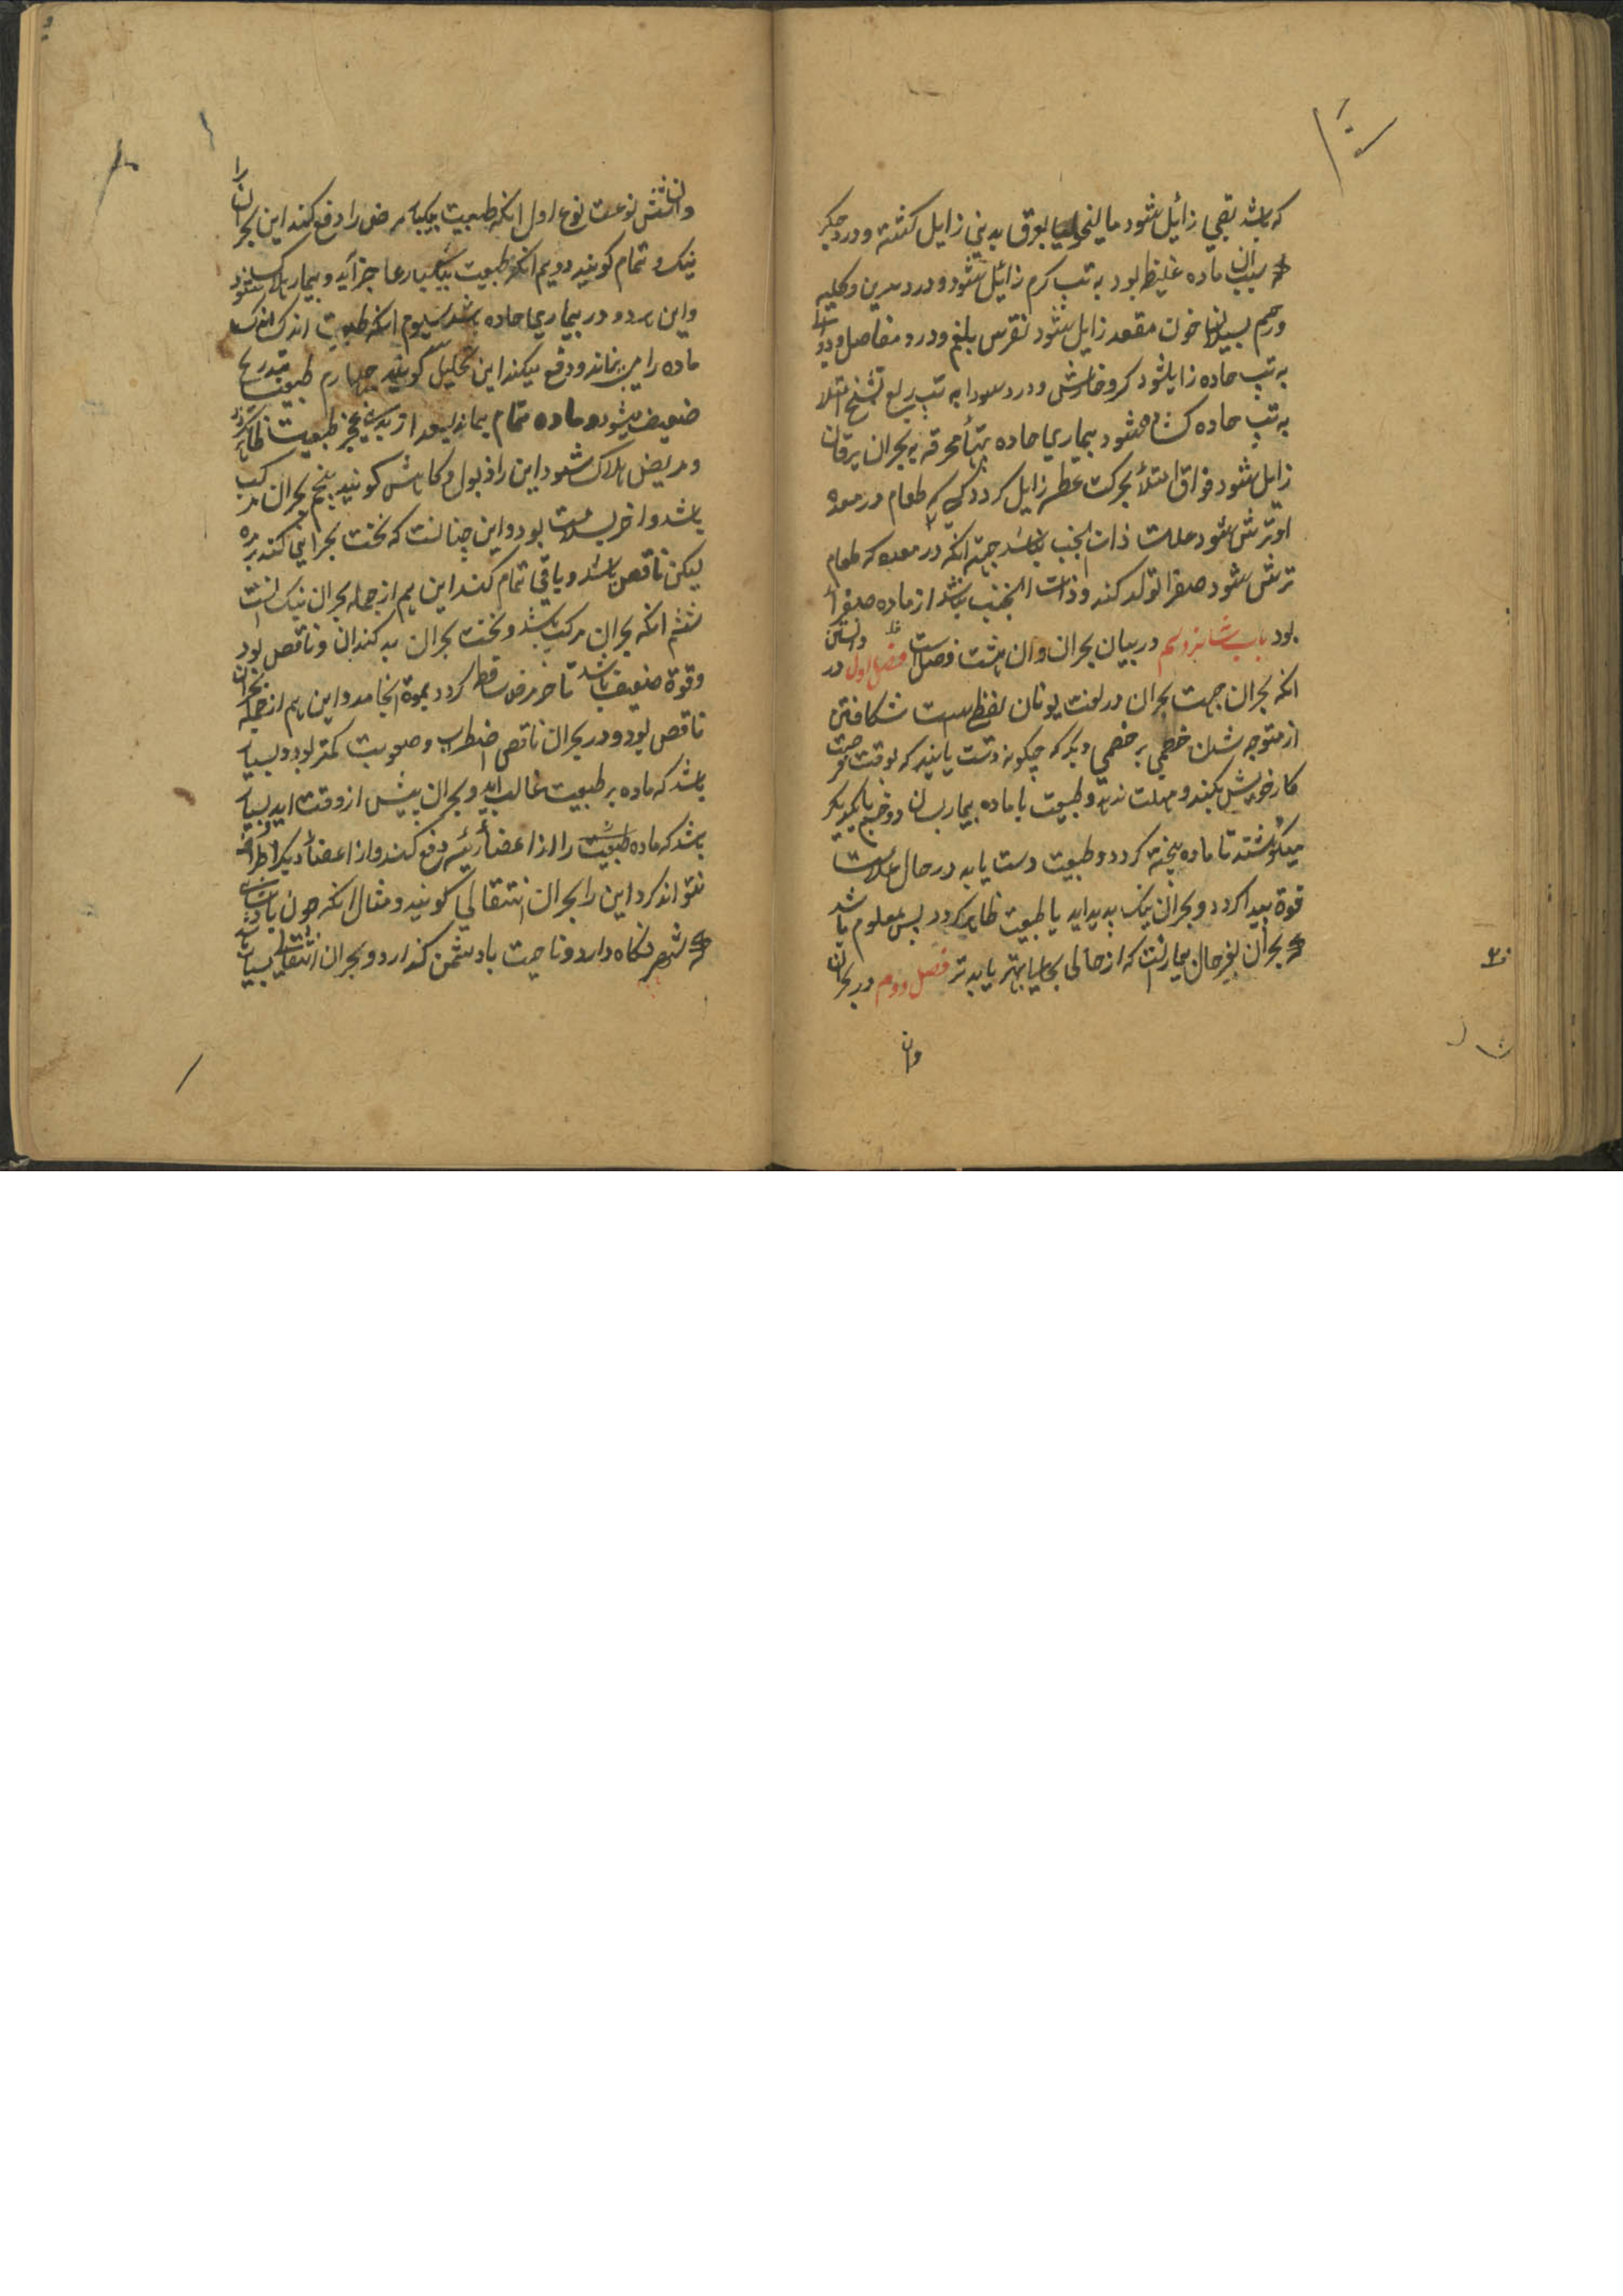 که باشد بقی زائل شود مالیخولیا بعرق بدنی زایل کشته و درد جکر
که سبب ان ماده غلیظ بود به تب کرم زائل شود و درد سرین و کلیه
و رحم بسیلان خون مقعد زایل شود نقرس بلغم و درد مفاصل و
به تب حاده زایل شود کر و خارش و درد سودا به تب ربع تشنج امتلا
به تب حاده کشاده شود بیماری حاده تبهأ محرقه به بحران یرقان
زایل شود فواق امتلأ بحرکت عطسه زایل کردد کسی که طعام در معده
او ترش شود علت ذات الجنب نباشد جهته انکه در معده که طعام
ترش شود صفرا تولد کند و ذات الجنب نباشد از ماده صفرا
بود باب شانزدهم در بیان بحران وان هشت فصل است فصل اول در دانستن
انکه بحران چیست بحران در لغت یونان لفظی است شکافتن
از متوجه شدن خصمی بر خصمی دیکر که چکونه دست یابند که بوقت فرصت
کار خویش بکند و مهلت ندهد و طبیعت با ماده بیمار بسان دو خصم با یکدیکر
میکوشند تا ماده پخته کردد و طبیعت دست یابد در حال علامت
قوة پیدا کردد و بحران نیک پدید اید یا طبیعت ظاهر کردد پس معلوم باشد
که بحران تغیر حال بیماریست که از حالی بحالی بهتر یا بدتر فصل دوم در بحران
وان
وان شش نوعست نوع اول انکه طبیعت بیکبار مرض را دفع کند این بحران را
نیک و تمام کویند دویم انکه طبیعت بیکبار عاجز اید و بیمار هلاک شود
و این هردو در بیماری حاده باشد سیوم انکه طبیعت اندک اندک
ماده را می پزاند و دفع میکند این تحلیل کویند چهارم طبیعت بتدریج
ضعیف میشود و ماده تمام بماند بعد از مدتی عجز طبیعت ظاهر کردد
و مریض هلاک شود این را ذبول و کاهش کویند پنجم بحران مرکب
باشد و اخر بسلامت بود و این چنانست که نخست بحرانی کند
لیکن ناقص باشد و باقی تمام کند این هم از جمله بحران نیک است
ششم انکه بحران مرکب باشد و نخست بحران بد کند ان و ناقص بود
و قوة ضعیف باشد تا اخر مرض ساقط کردد بموة انجامد و این هم از جمله بحران
ناقص بود و در بحران ناقص اضطراب و صعوبت کمتر بود و بسیار
باشد که ماده بر طبیعت غالب اید و بحران پیش از وقت اید بسیار
باشد که ماده طبیعت را از اعضأ رئیسه دفع کند و از اعضأ دیکر و اطراف
نتواند کرد این را بحران انتقالی کویند و مثال انکه چون پادشاه
که شهر نکاه دارد و ناحیت باد شمن کذارد و بحران انتقالی بسیار باشد